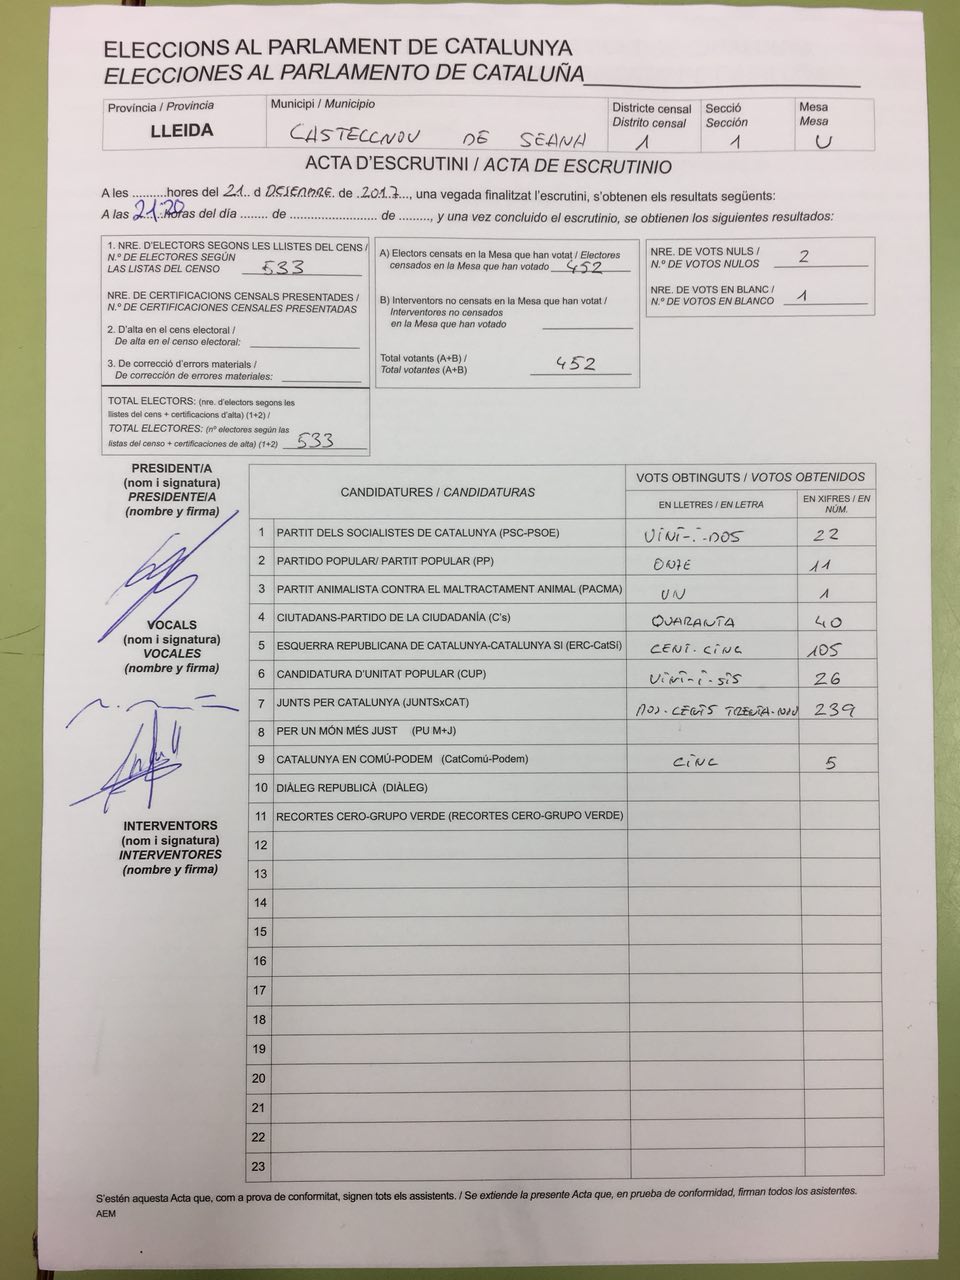 ELECCIONS AL PARLAMENT DE CATALUNYA
ELECCIONES AL PARLAMENTO DE CATALUÑA
Província / Provincia
LLEIDA
Municipi / Municipio
CASTELLNOU DE SEANA
Districte censal
Distrito censal
1
Secció
Sección
1
Mesa
Mesa
U
ACTA D'ESCRUTINI / ACTA DE ESCRUTINIO
A les ..........hores del 21 d DESEMBRE de 2017, una vegada finalitzat l'escrutini, s'obtenen els resultats següents:
A las 21:20 horas del día ........ de ......................... de ........., y una vez concluido el escrutinio, se obtienen los siguientes resultados:
1. NRE. D'ELECTORS SEGONS LES LLISTES DEL CENS /
N.º DE ELECTORES SEGÚN
LAS LISTAS DEL CENSO 533
NRE. DE CERTIFICACIONS CENSALS PRESENTADES /
N.º DE CERTIFICACIONES CENSALES PRESENTADAS
2. D'alta en el cens electoral /
De alta en el censo electoral:
3. De correcció d'errors materials /
De corrección de errores materiales:
TOTAL ELECTORS: (nre. d'electors segons les
llistes del cens + certificacions d'alta) (1+2) /
TOTAL ELECTORES: (nº electores según las
listas del censo + certificaciones de alta) (1+2) 533
A) Electors censats en la Mesa que han votat / Electores
censados en la Mesa que han votado 452
B) Interventors no censats en la Mesa que han votat /
Interventores no censados
en la Mesa que han votado
Total votants (A+B) /
Total votantes (A+B) 452
NRE. DE VOTS NULS /
N.º DE VOTOS NULOS 2
NRE. DE VOTS EN BLANC /
N.º DE VOTOS EN BLANCO 1
PRESIDENT/A
(nom i signatura)
PRESIDENTE/A
(nombre y firma)
VOCALS
(nom i signatura)
VOCALES
(nombre y firma)
INTERVENTORS
(nom i signatura)
INTERVENTORES
(nombre y firma)
CANDIDATURES / CANDIDATURAS
VOTS OBTINGUTS / VOTOS OBTENIDOS
EN LLETRES / EN LETRA
EN XIFRES / EN
NÚM.
1 PARTIT DELS SOCIALISTES DE CATALUNYA (PSC-PSOE) VINT-I-DOS 22
2 PARTIDO POPULAR/ PARTIT POPULAR (PP) ONZE 11
3 PARTIT ANIMALISTA CONTRA EL MALTRACTAMENT ANIMAL (PACMA) UN 1
4 CIUTADANS-PARTIDO DE LA CIUDADANÍA (C's) QUARANTA 40
5 ESQUERRA REPUBLICANA DE CATALUNYA-CATALUNYA SI (ERC-CatSí) CENT. CINC 105
6 CANDIDATURA D'UNITAT POPULAR (CUP) VINT-I-SIS 26
7 JUNTS PER CATALUNYA (JUNTSxCAT) DOS-CENTS TRENTA-NOU 239
8 PER UN MÓN MÉS JUST (PU M+J)
9 CATALUNYA EN COMÚ-PODEM (CatComú-Podem) CINC 5
10 DIÀLEG REPUBLICÀ (DIÀLEG)
11 RECORTES CERO-GRUPO VERDE (RECORTES CERO-GRUPO VERDE)
12
13
14
15
16
17
18
19
20
21
22
23
S'estén aquesta Acta que, com a prova de conformitat, signen tots els assistents. / Se extiende la presente Acta que, en prueba de conformidad, firman todos los asistentes.
AEM